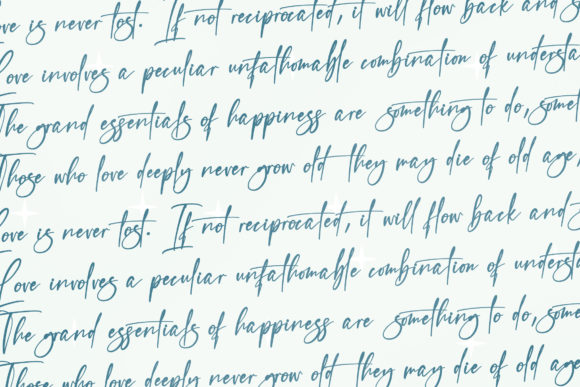 ove is never lost. If not reciprocated, it will flow back and
Love involves a peculiar unfathomable combination of understa
The grand essentials of happiness are something to do, somet
Those who love deeply never grow old they may die of old age,
ove is never lost. If not reciprocated, it will flow back and
Love involves a peculiar unfathomable combination of understa
The grand essentials of happiness are something to do, some
Those who love deeply never grow old they may die of old age